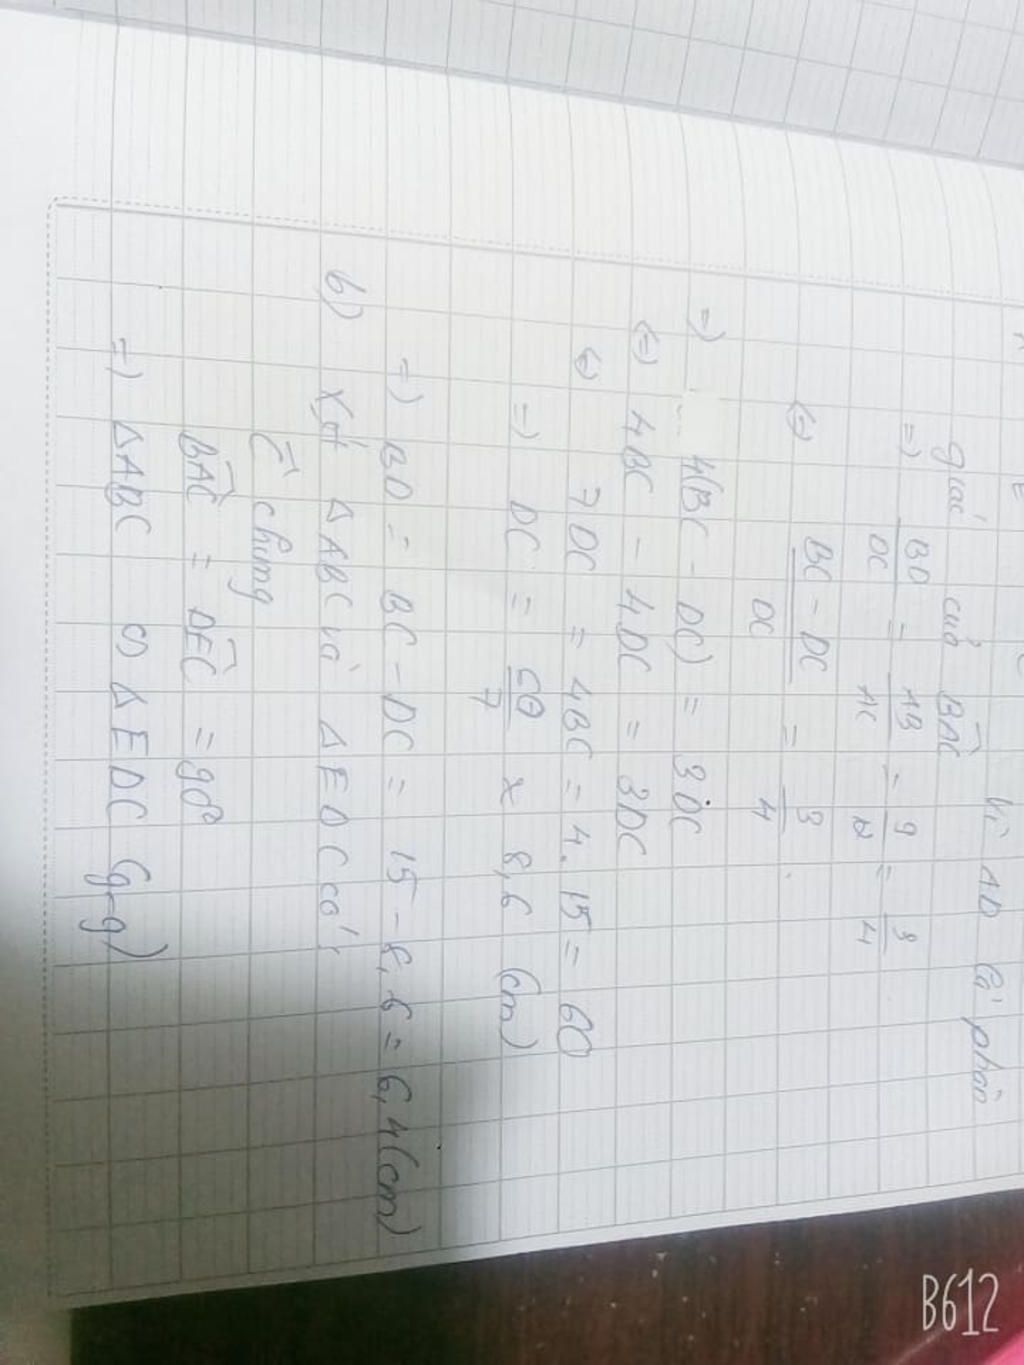 Vì AD là phân
giác của BAC
=) BD/DC = AB/AC = 9/12 = 3/4
(=) BC - DC/DC = 3/4
=) 4(BC - DC) = 3DC
(=) 4BC - 4DC = 3DC
(=) 7DC = 4BC = 4.15 = 60
=) DC = 60/7 x 8,6 (cm)
=) BD = BC - DC = 15 - 8,6 = 6,4 (cm)
b) Xét ΔABC và ΔEDC có:
C chung
BAC = DEC = 90°
=) ΔABC ᔕ ΔEDC (g-g)
B612